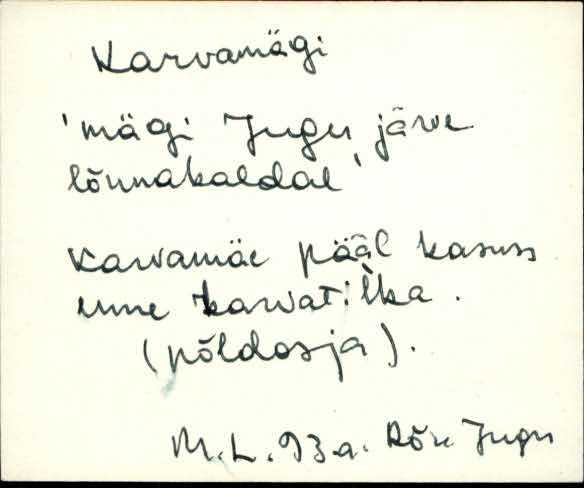 Karvamägi
'mägi Jugu järve
lõunakaldal'
Karvamäe pääl kasuss
enne karvatilka.
(põldosja).
M.L. 93 a. Rõu Jugu